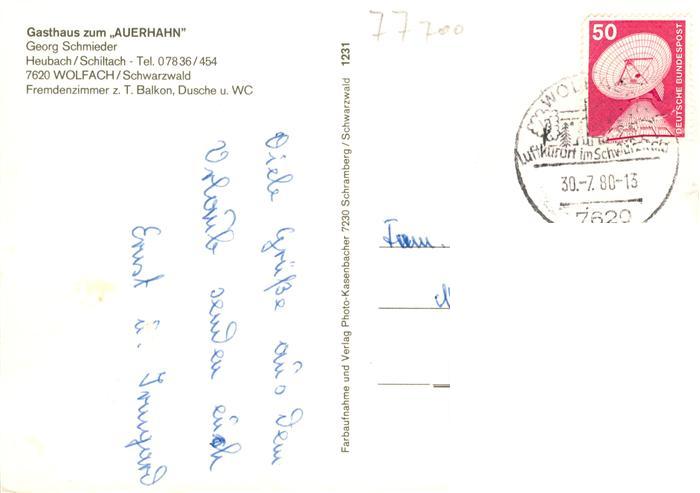 Gasthaus zum „AUERHAHN”
Georg Schmieder
Heubach/Schiltach - Tel. 07836/454
7620 WOLFACH/Schwarzwald
Fremdenzimmer z. T. Balkon, Dusche u. WC
Viele Grüße aus dem
Urlaub senden euch
Ernst u. Irmgard
Farbaufnahme und Verlag Photo-Kasenbacher 7230 Schramberg/Schwarzwald 1231
77700
50
DEUTSCHE BUNDESPOST
Luftkurort im Schwarzwald
30.-7.80-13
7620
Fam.